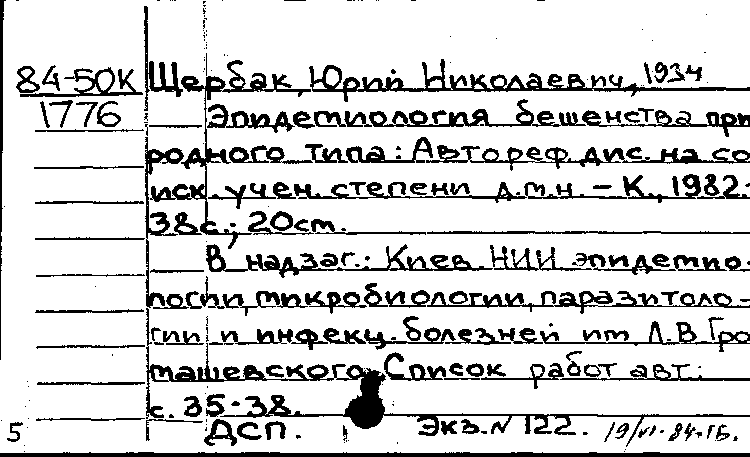 84-50К Щербак, Юрий Николаевич, 1934
1776 Эпидемиология бешенства при
родного типа: Автореф. дис. на со
иск. учен. степени д.м.н. – К., 1982.
38с.; 20см.
В надзаг.: Киев. НИИ эпидемио-
логии, микробиологии, паразитоло-
гии и инфекц. болезней им Л.В Гро
машевского. Список работ авт.:
с. 35-38.
5 ДСП. Экз. N 122. 19/VI-84.